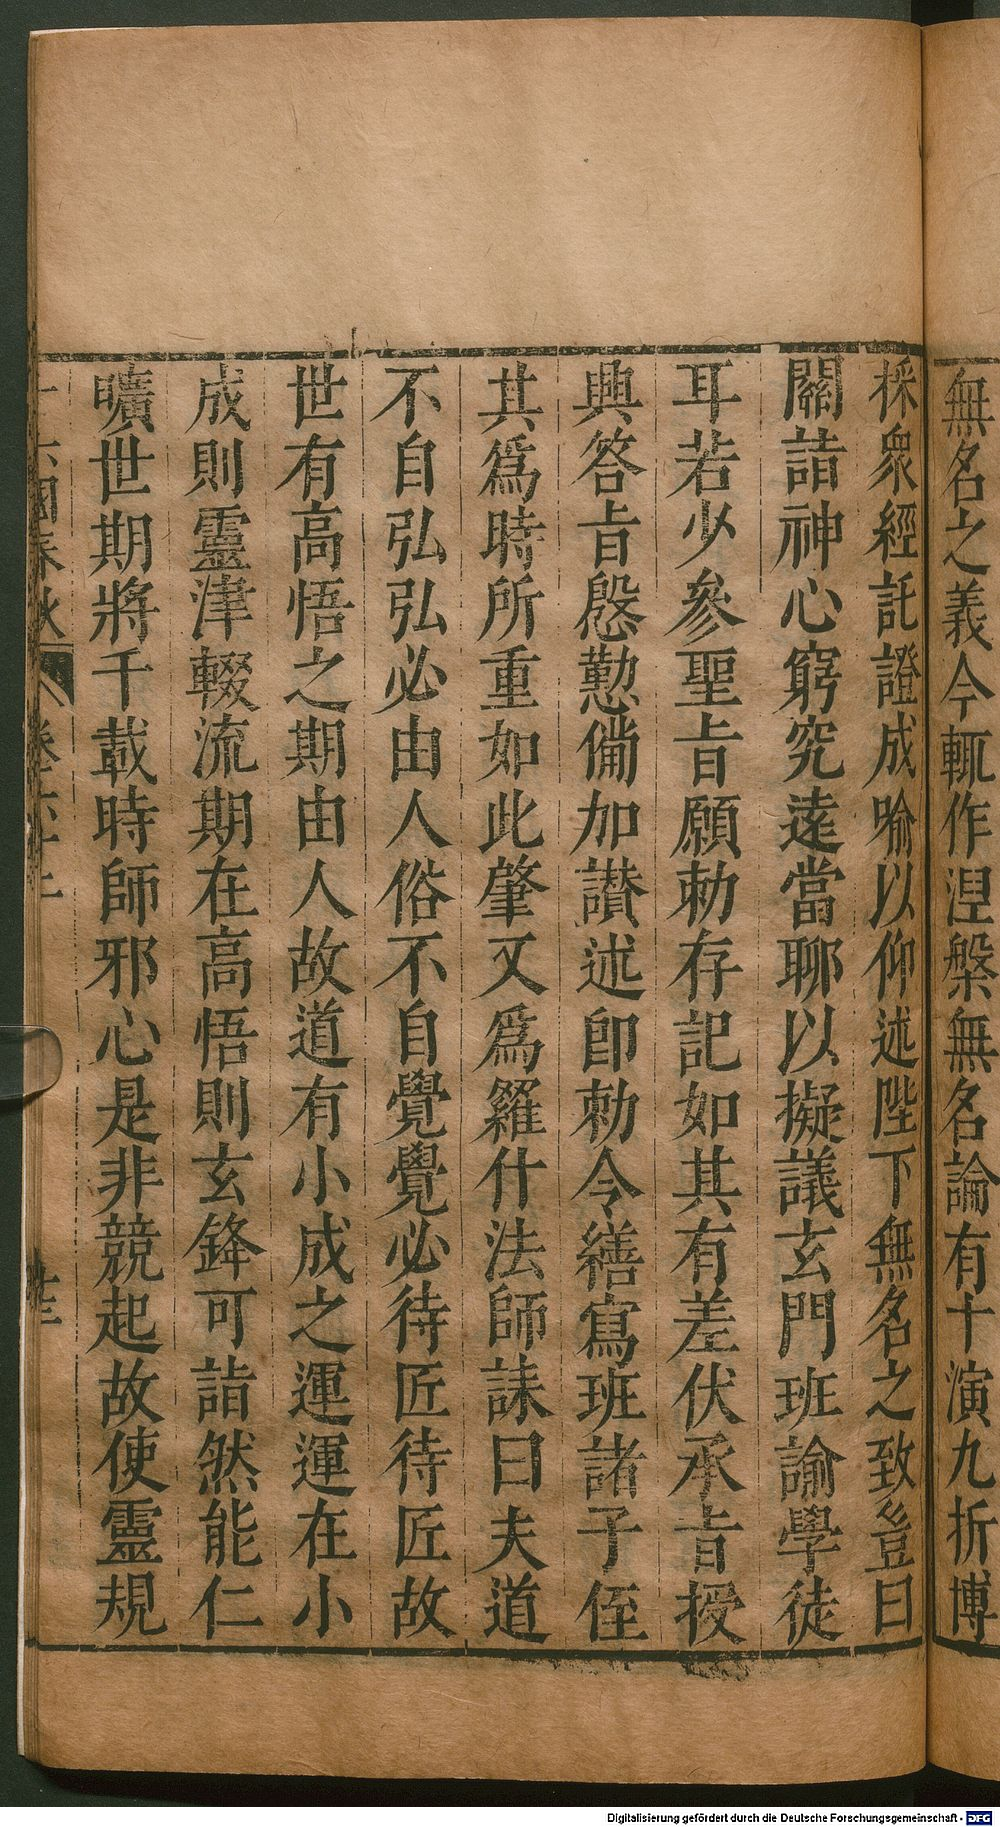 無名之義今輒作涅槃無名論有十演九折博
採衆經託證成喻以仰述陛下無名之致豈曰
關詣神心窮究遠當聊以擬議玄門班諭學徒
耳若少參聖旨願勅存記如其有差伏承旨授
興答旨慇懃備加讃述卽勅令繕寫班諸子侄
其爲時所重如此肇又爲羅什法師誄曰夫道
不自弘弘必由人俗不自覺覺必待匠待匠故
世有高悟之期由人故道有小成之運運在小
成則靈津輟流期在高悟則玄鋒可詣然能仁
曠世期將千載時師邪心是非競起故使靈規
國春秋 卷六十二
Digitalisierung gefördert durch die Deutsche Forschungsgemeinschaft - DFG